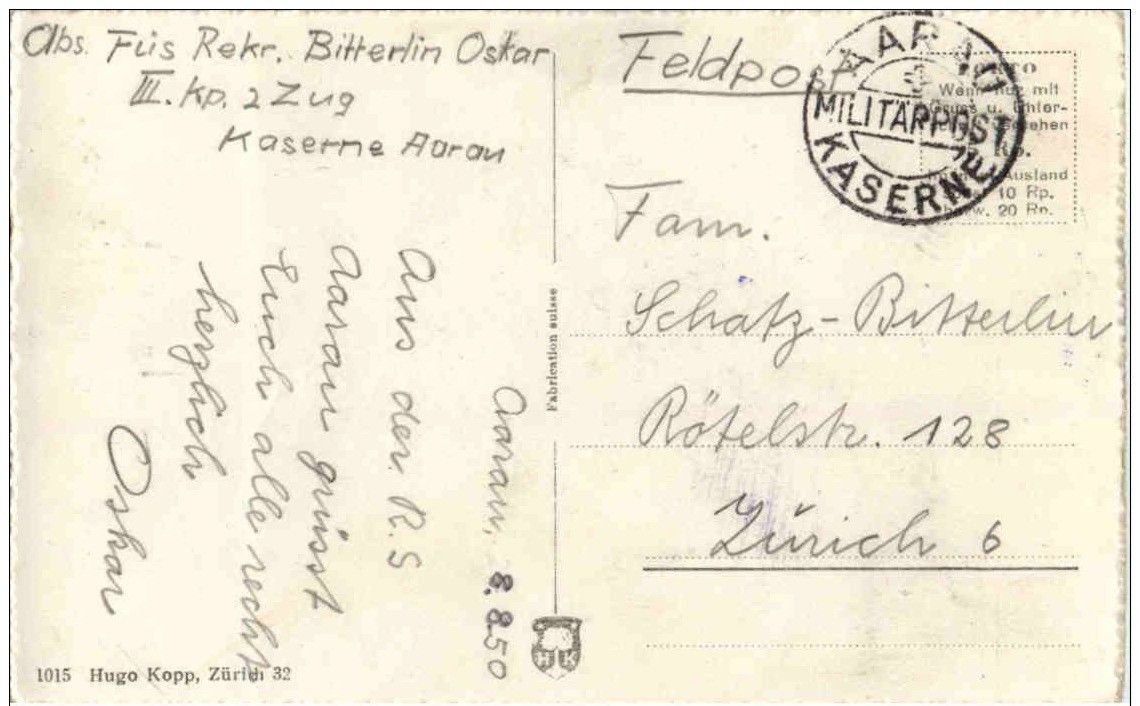 Abs. Füs Rekr. Bitterlin Oskar
III. Kp. 2 Zug
Kaserne Aarau
Aarau, 8.8.50
Aus der R.S
Aarau grüsst
Euch alle recht
herzlich
Oskar
1015 Hugo Kopp, Zürich 32
Fabrication suisse
H K
Feldpost
AARAU
MILITÄRPOST
KASERNE
PORTO
Wenn nur mit
Gruss u. Unter-
Rp.
Ausland
10 Rp.
20 Rp.
Fam.
Schatz-Bitterlin
Rötelstr. 128
Zürich 6